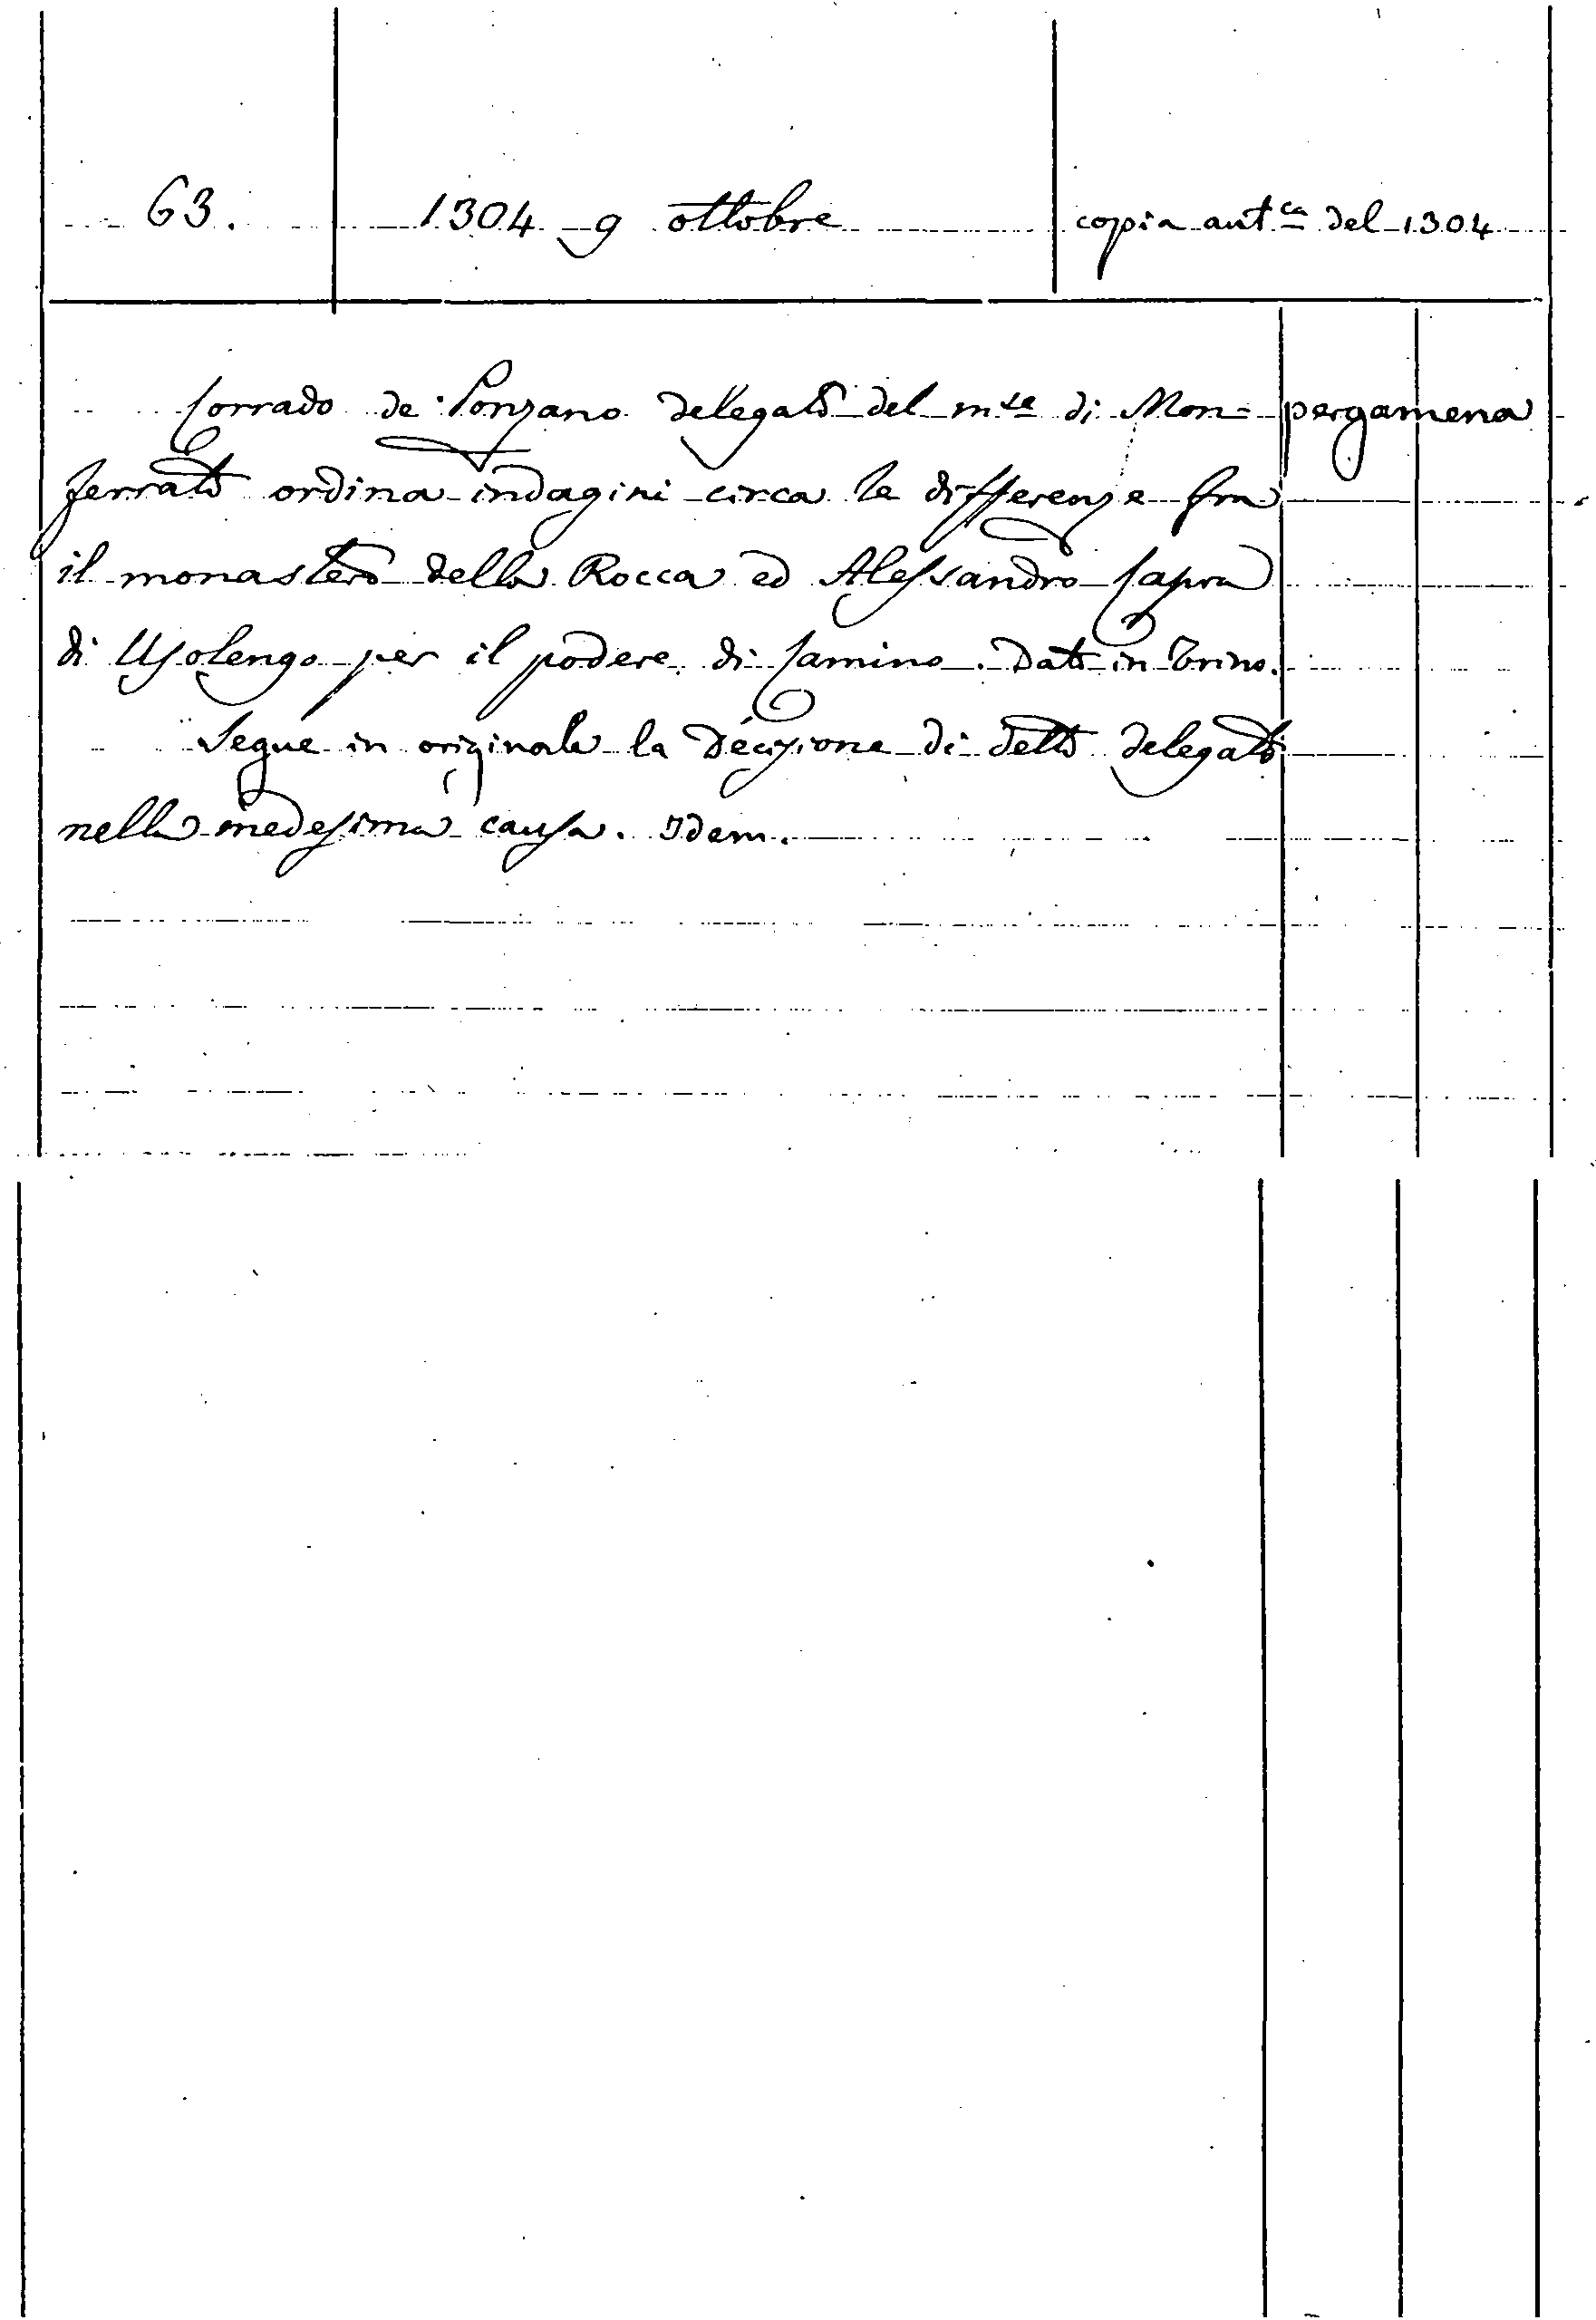 63.
1304 9 ottobre
copia aut^ca del 1304
Corrado de Ponzano delegato del m^se di Mon=
pergamena
ferrato ordina indagini circa le differenze fra
il monastero della Rocca ed Alessandro Capra
di Usolengo per il podere di Camino. Dato in Trino.
Segue in originale la Decisione di detto delegato
nella medesima causa. Idem.